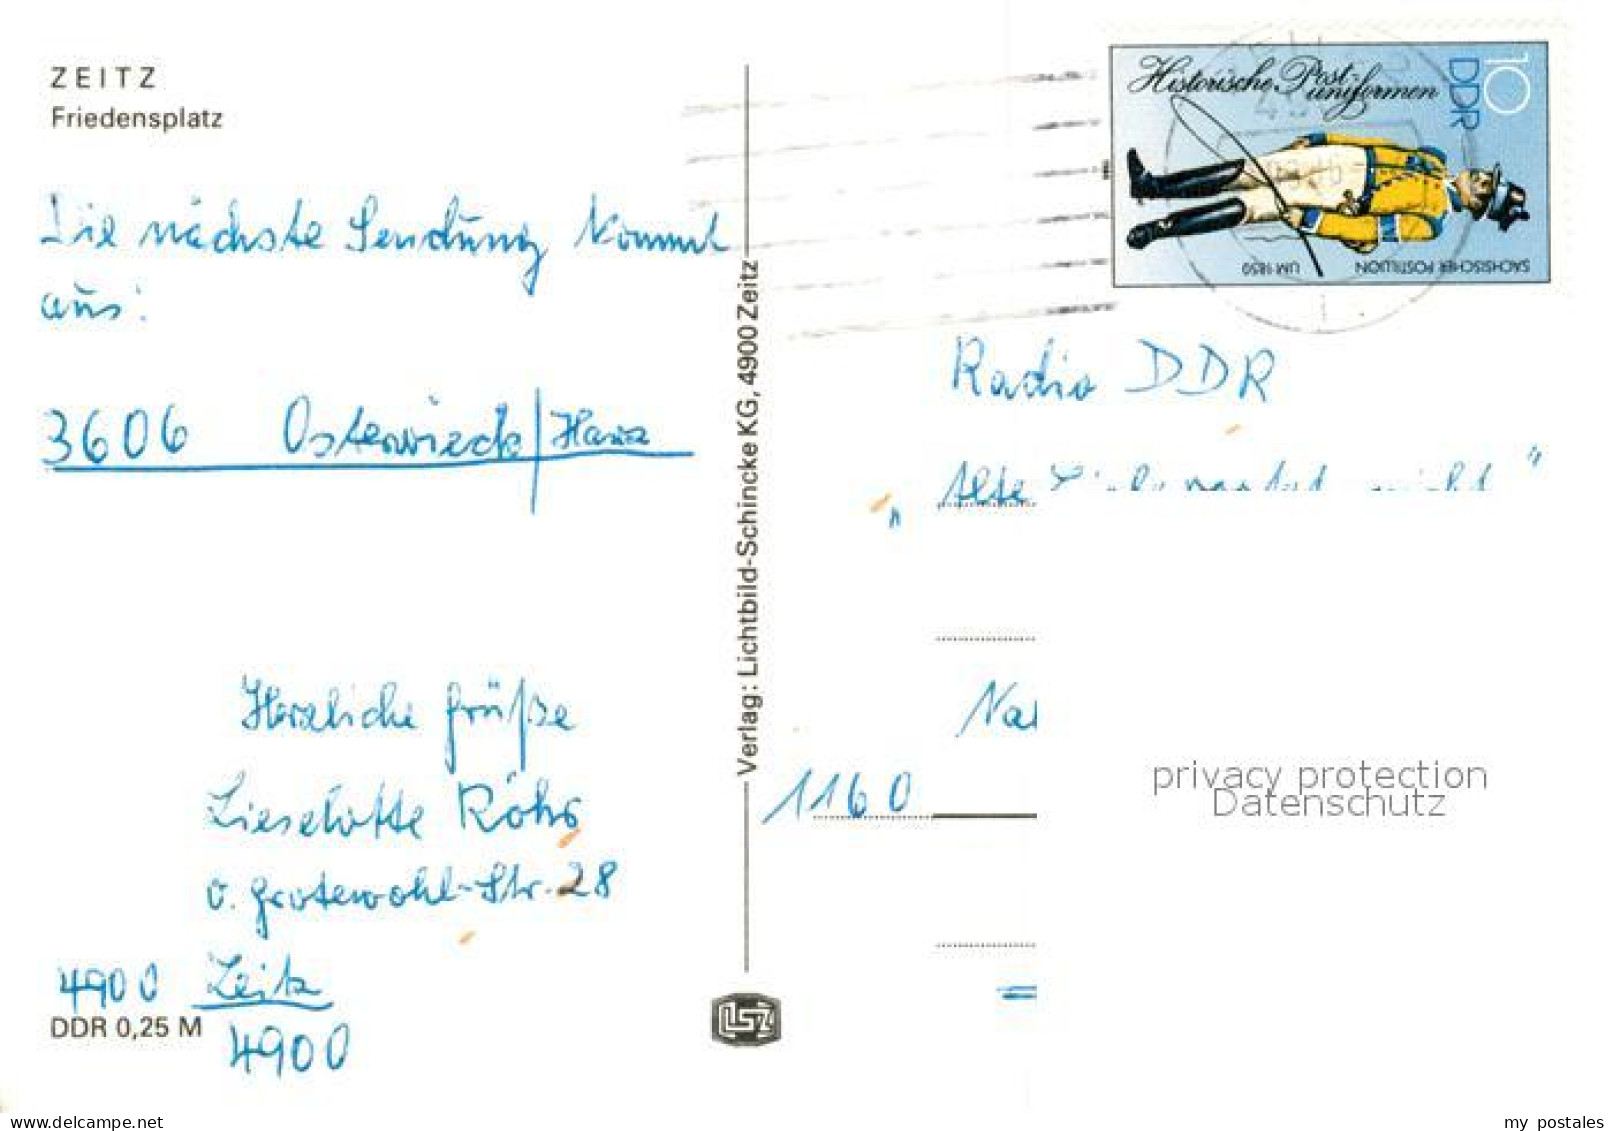 ZEITZ
Friedensplatz
Die nächste Sendung kommt
aus:
3606 Osterwieck/Harz
Herzliche Grüße
Lieselotte Röhr
O. Grotewohl-Str. 28
4900 Zeitz
DDR 0,25 M
4900
Verlag: Lichtbild-Schincke KG, 4900 Zeitz
LSZ
Historische Post-
uniformen
DDR 10
SÄCHSISCHER POSTILLION UM 1850
Radio DDR
"Alte nicht"
1160
privacy protection
Datenschutz
https://www.delcampe.net/de/sammlerobjekte/store/my-postales
my postales